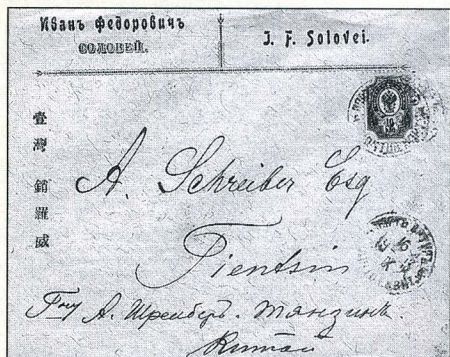 Иванъ Федоровичъ
СОЛОВЕЙ.
J. F. Solovei.
臺灣銷羅威
A. Schreiber Esq
Tientsin
Г-ну А. Шрейберъ. Тянзинъ.
Китай